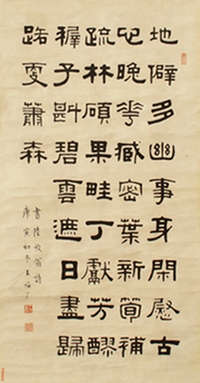 地僻多幽事身閑慰古
心晚花藏密葉新筍補
疏林碩果畦丁獻芳醪
穉子斟碧雲遮日盡歸
路更蕭森
書陸放翁詩
庚寅初冬王福厂